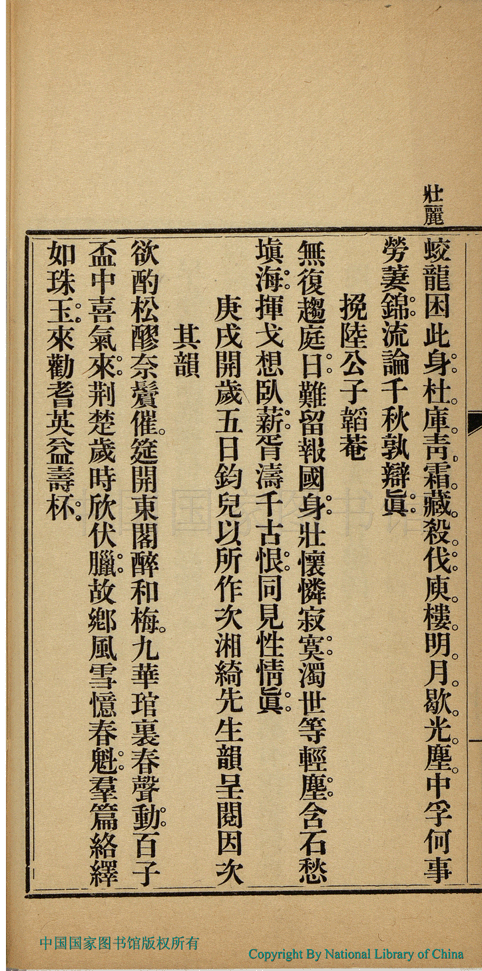 壯麗
蛟龍困此身杜庫靑霜藏殺伐庾樓明月歇光塵中孚何事
勞萋錦流論千秋孰辯眞
挽陸公子韜菴
無復趨庭日難留報國身壯懷憐寂寞濁世等輕塵含石愁
塡海揮戈想臥薪胥濤千古恨同見性情眞
庚戌開歲五日鈞兒以所作次湘綺先生韻呈閱因次
其韻
欲酌松醪奈鬢催筵開東閣醉和梅九華琯裏春聲動百子
盃中喜氣來荆楚歲時欣伏臘故鄕風雪憶春魁羣篇絡繹
如珠玉來勸耆英益壽杯
中国国家图书馆
中国国家图书馆版权所有
Copyright By National Library of China